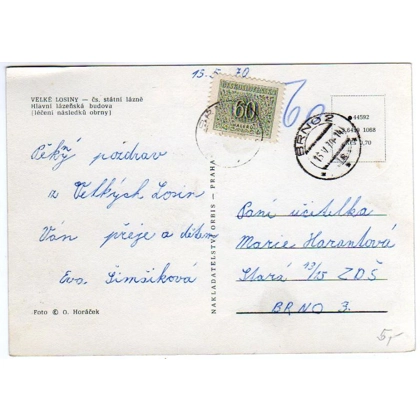 13. 5. 70
VELKÉ LOSINY — čs. státní lázně
Hlavní lázeňská budova
(léčení následků obrny)
60
60
BRNO 2
44592
1088
0,70
Pěkný pozdrav
z Velkých Losin
Vám přeje a dětem
Eva Šimšíková
NAKLADATELSTVÍ ORBIS — PRAHA
Paní učitelka
Marie Harantová
Stará 13/15 ZDŠ
BRNO 3.
Foto © O. Horáček
5,-